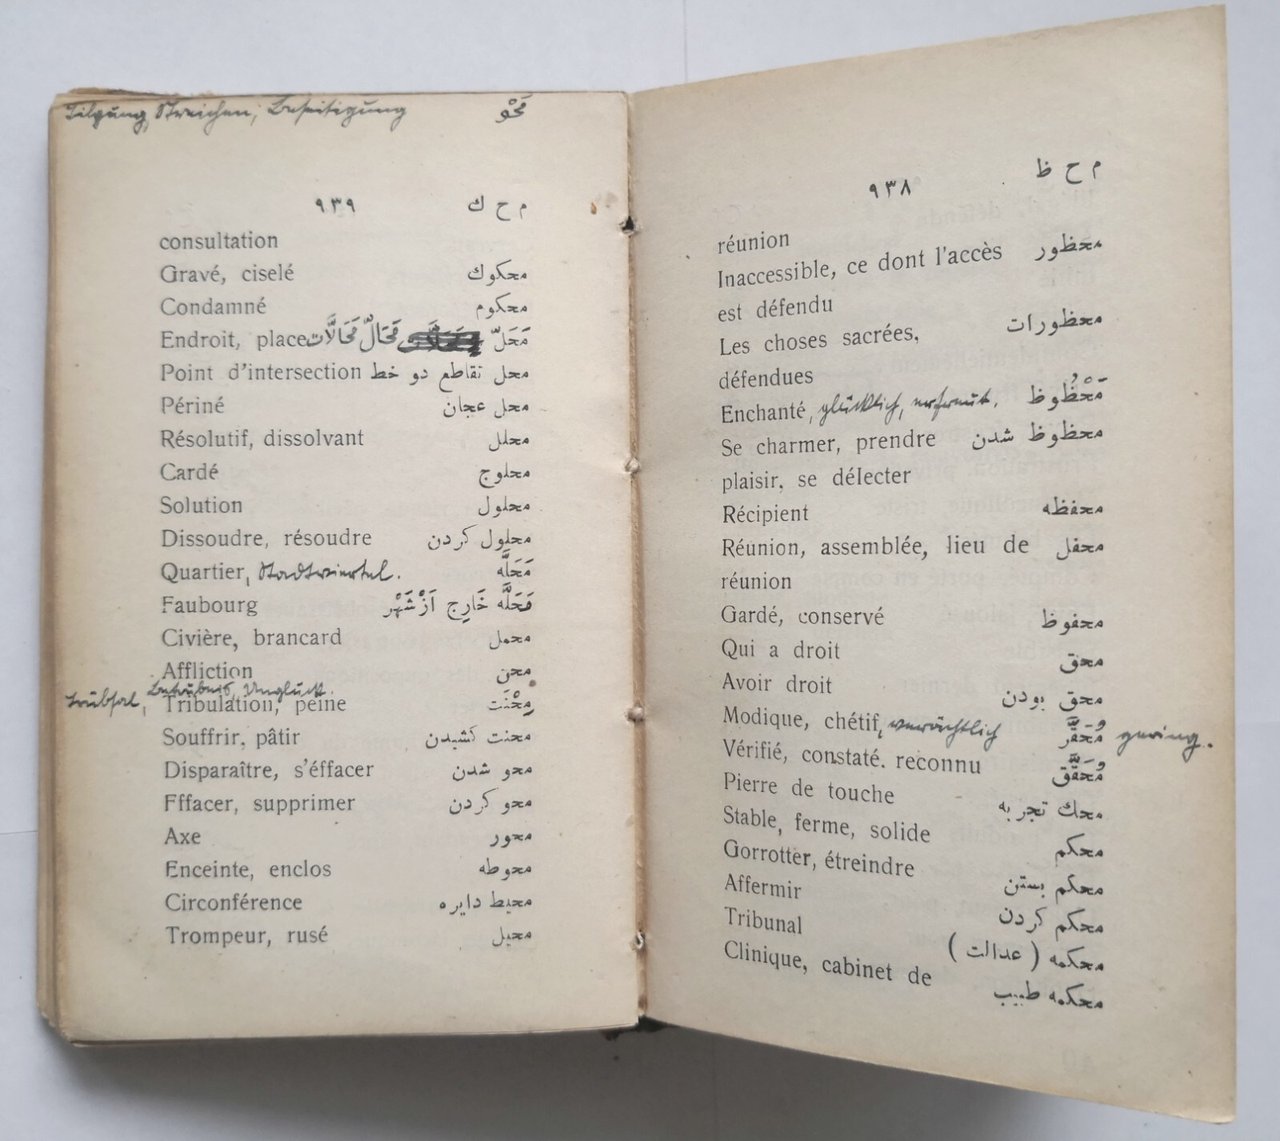 ٩٣٨ م ح ظ
réunion
Inaccessible, ce dont l'accès محظور
est défendu
Les choses sacrées, محظورات
défendues
Enchanté, glücklich, erfreut. مَحْظُوظ
Se charmer, prendre محظوظ شدن
plaisir, se délecter
Récipient محفظه
Réunion, assemblée, lieu de محفل
réunion
Gardé, conservé محفوظ
Qui a droit محق
Avoir droit محق بودن
Modique, chétif, verächtlich مُحَقَّر gering.
Vérifié, constaté. reconnu مُحَقَّق
Pierre de touche محك تجربه
Stable, ferme, solide محكم
Gorrotter, étreindre محكم بستن
Affermir محكم كردن
Tribunal محكمه ( عدالت )
Clinique, cabinet de محكمه طبيب
Tilgung, Streichen, Beseitigung مَحْو
٩٣٩ م ح ك
consultation
Gravé, ciselé محكوك
Condamné محكوم
Endroit, place مَحَلّ مَحَالّ مَحَالَّات
Point d'intersection محل تقاطع دو خط
Périné محل عجان
Résolutif, dissolvant محلل
Cardé محلوج
Solution محلول
Dissoudre, résoudre محلول كردن
Quartier, Stadtviertel. مَحَلَّه
Faubourg مَحَلَّه خَارِج اَزْ شَهْر
Civière, brancard محمل
Affliction محن
Trübsal, Betrübnis, Unglück.
Tribulation, peine مِحْنَت
Souffrir, pâtir محنت كشيدن
Disparaître, s'éffacer محو شدن
Fffacer, supprimer محو كردن
Axe محور
Enceinte, enclos محوطه
Circonférence محيط دايره
Trompeur, rusé محيل